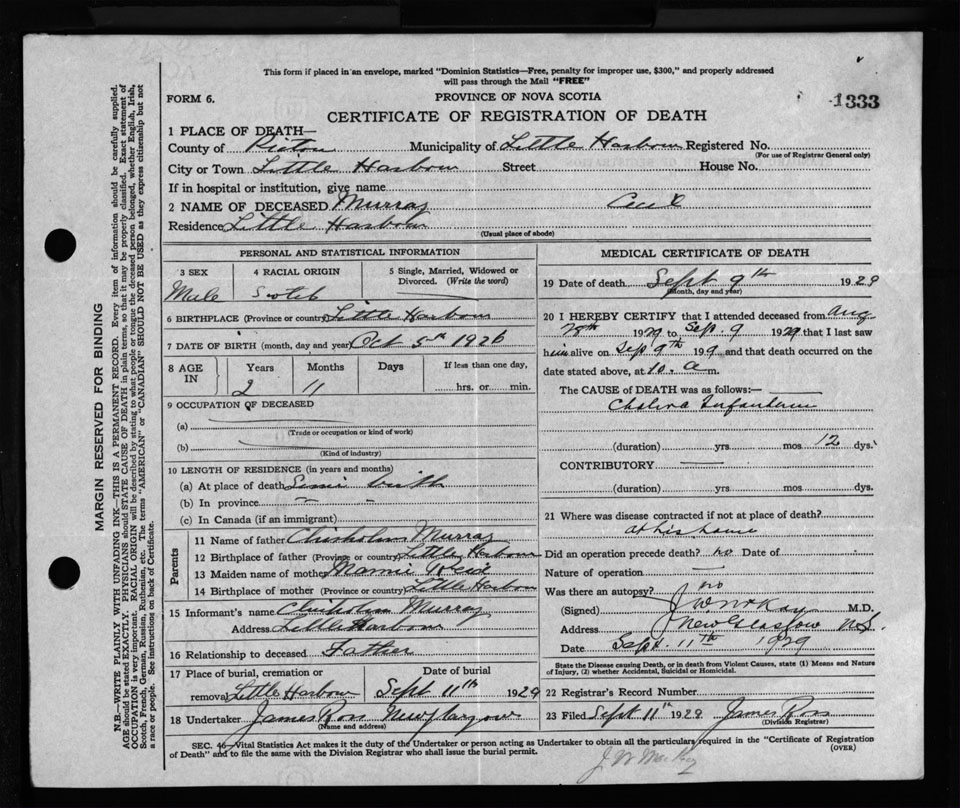 This form if placed in an envelope, marked "Dominion Statistics—Free, penalty for improper use, $300," and properly addressed
will pass through the Mail "FREE"
FORM 6.
PROVINCE OF NOVA SCOTIA
1333
CERTIFICATE OF REGISTRATION OF DEATH
1 PLACE OF DEATH—
County of Pictou Municipality of Little Harbour Registered No.
(For use of Registrar General only)
City or Town Little Harbour Street House No.
If in hospital or institution, give name
2 NAME OF DECEASED Murray
Residence Little Harbour
(Usual place of abode)
PERSONAL AND STATISTICAL INFORMATION
3 SEX
4 RACIAL ORIGIN
5 Single, Married, Widowed or Divorced. (Write the word)
Male Scotch
6 BIRTHPLACE (Province or country) Little Harbour
7 DATE OF BIRTH (month, day and year) Oct 5th 1926
8 AGE IN
Years Months Days If less than one day,
2 11 hrs. or min.
9 OCCUPATION OF DECEASED
(a)
(Trade or occupation or kind of work)
(b)
(Kind of industry)
10 LENGTH OF RESIDENCE (in years and months)
(a) At place of death Since birth
(b) In province
(c) In Canada (if an immigrant)
Parents
11 Name of father Chisholm Murray
12 Birthplace of father (Province or country) Little Harbour
13 Maiden name of mother Mamie Reid
14 Birthplace of mother (Province or country) Little Harbour
15 Informant's name Chisholm Murray
Address Little Harbour
16 Relationship to deceased Father
17 Place of burial, cremation or Date of burial
removal Little Harbour Sept 11th 1929
18 Undertaker James Ross New Glasgow
(Name and address)
MEDICAL CERTIFICATE OF DEATH
19 Date of death Sept 9th 1929
(Month, day and year)
20 I HEREBY CERTIFY that I attended deceased from Aug
1929 to Sep. 9 1929 that I last saw
him alive on Sep 9th 19 9 and that death occurred on the
date stated above, at 10. a m.
The CAUSE of DEATH was as follows:—
Cholera Infantum
(duration) yrs mos 12 dys.
CONTRIBUTORY
(duration) yrs. mos. dys.
21 Where was disease contracted if not at place of death?
at his home
Did an operation precede death? no Date of
Nature of operation
Was there an autopsy? no
(Signed) M.D.
Address New Glasgow N.S.
Date Sept. 11th 1929
State the Disease causing Death, or in death from Violent Causes, state (1) Means and Nature
of Injury, (2) whether Accidental, Suicidal or Homicidal.
22 Registrar's Record Number
23 Filed Sept 11th 1929 James Ross
(Division Registrar)
SEC. 46—Vital Statistics Act makes it the duty of the Undertaker or person acting as Undertaker to obtain all the particulars required in the "Certificate of Registration
of Death" and to file the same with the Division Registrar who shall issue the burial permit.
(OVER)
MARGIN RESERVED FOR BINDING
N.B.—WRITE PLAINLY WITH UNFADING INK—THIS IS A PERMANENT RECORD. Every item of information should be carefully supplied.
AGE should be stated EXACTLY. PHYSICIANS should STATE CAUSE OF DEATH in plain terms, so that it may be properly classified. Exact statement of
OCCUPATION is very important. RACIAL ORIGIN will be described by stating to what people or tongue the deceased person belonged, whether English, Irish,
Scotch, French, German, Russian, Ruthenian, etc. The terms "AMERICAN" or "CANADIAN" SHOULD NOT BE USED as they express citizenship but not
a race or people. See instructions on back of Certificate.